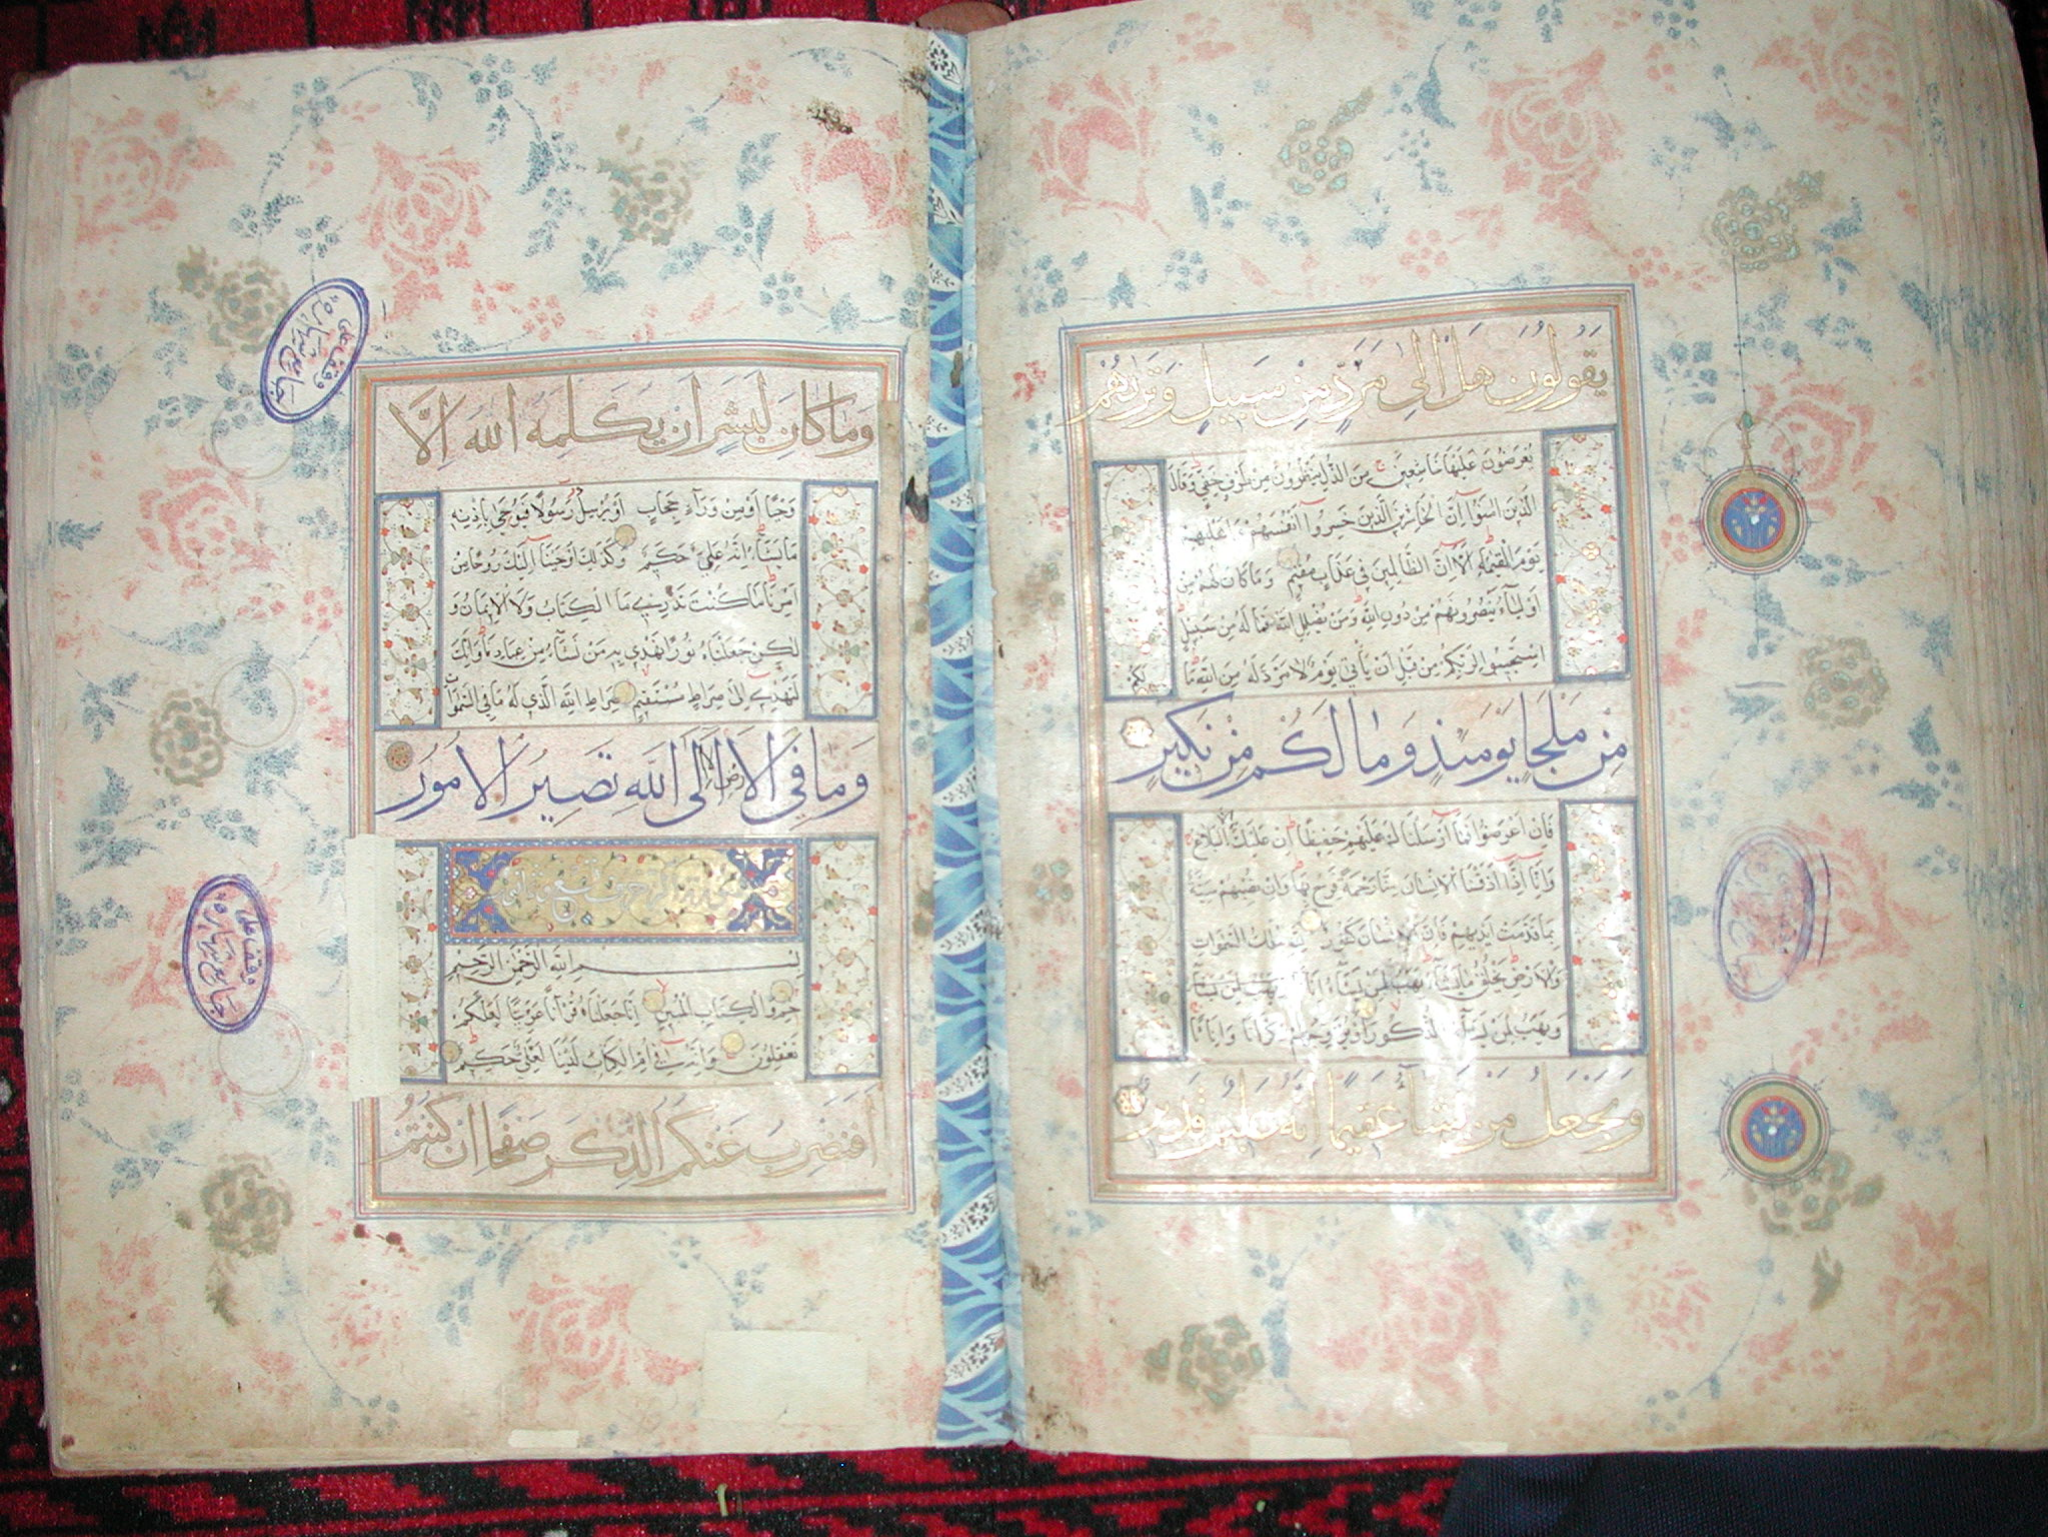 يَقُولُونَ هَلْ اِلٰى مَرَدٍّ مِنْ سَبِيلٍ وَتَرٰيهُمْ
يُعْرَضُونَ عَلَيْهَا خَاشِعِينَ مِنَ الذُّلِّ يَنْظُرُونَ مِنْ طَرْفٍ خَفِيٍّ وَقَالَ
الَّذِينَ اٰمَنُوا اِنَّ الْخَاسِرِينَ الَّذِينَ خَسِرُوا اَنْفُسَهُمْ وَاَهْلِيهِمْ
يَوْمَ الْقِيٰمَةِ اَلَا اِنَّ الظَّالِمِينَ فِي عَذَابٍ مُقِيمٍ وَمَا كَانَ لَهُمْ مِنْ
اَوْلِيَاءَ يَنْصُرُونَهُمْ مِنْ دُونِ اللّٰهِ وَمَنْ يُضْلِلِ اللّٰهُ فَمَا لَهُ مِنْ سَبِيلٍ
اسْتَجِيبُوا لِرَبِّكُمْ مِنْ قَبْلِ اَنْ يَأْتِيَ يَوْمٌ لَا مَرَدَّ لَهُ مِنَ اللّٰهِ مَا
لَكُمْ
مِنْ مَلْجَإٍ يَوْمَئِذٍ وَمَا لَكُمْ مِنْ نَكِيرٍ
فَاِنْ اَعْرَضُوا فَمَا اَرْسَلْنَاكَ عَلَيْهِمْ حَفِيظًا اِنْ عَلَيْكَ اِلَّا الْبَلَاغُ
وَاِنَّا اِذَا اَذَقْنَا الْاِنْسَانَ مِنَّا رَحْمَةً فَرِحَ بِهَا وَاِنْ تُصِبْهُمْ سَيِّئَةٌ
بِمَا قَدَّمَتْ اَيْدِيهِمْ فَاِنَّ الْاِنْسَانَ كَفُورٌ لِلّٰهِ مُلْكُ السَّمٰوَاتِ
وَالْاَرْضِ يَخْلُقُ مَا يَشَاءُ يَهَبُ لِمَنْ يَشَاءُ اِنَاثًا وَيَهَبُ لِمَنْ يَشَاءُ
وَيَهَبُ لِمَنْ يَشَاءُ الذُّكُورَ اَوْ يُزَوِّجُهُمْ ذُكْرَانًا وَاِنَاثًا
وَيَجْعَلُ مَنْ يَشَاءُ عَقِيمًا اِنَّهُ عَلِيمٌ قَدِيرٌ
وَمَا كَانَ لِبَشَرٍ اَنْ يُكَلِّمَهُ اللّٰهُ اِلَّا
وَحْيًا اَوْ مِنْ وَرَاءِ حِجَابٍ اَوْ يُرْسِلَ رَسُولًا فَيُوحِيَ بِاِذْنِهِ
مَا يَشَاءُ اِنَّهُ عَلِيٌّ حَكِيمٌ وَكَذٰلِكَ اَوْحَيْنَا اِلَيْكَ رُوحًا مِنْ
اَمْرِنَا مَا كُنْتَ تَدْرِي مَا الْكِتَابُ وَلَا الْاِيمَانُ وَ
لٰكِنْ جَعَلْنَاهُ نُورًا نَهْدِي بِهِ مَنْ نَشَاءُ مِنْ عِبَادِنَا وَاِنَّكَ
لَتَهْدِي اِلٰى صِرَاطٍ مُسْتَقِيمٍ صِرَاطِ اللّٰهِ الَّذِي لَهُ مَا فِي السَّمٰوَاتِ
وَمَا فِي الْاَرْضِ اَلَا اِلَى اللّٰهِ تَصِيرُ الْاُمُورُ
بِسْمِ اللّٰهِ الرَّحْمٰنِ الرَّحِيمِ
حٰمٓ وَالْكِتَابِ الْمُبِينِ اِنَّا جَعَلْنَاهُ قُرْاٰنًا عَرَبِيًّا لَعَلَّكُمْ
تَعْقِلُونَ وَاِنَّهُ فِي اُمِّ الْكِتَابِ لَدَيْنَا لَعَلِيٌّ حَكِيمٌ
اَفَنَضْرِبُ عَنْكُمُ الذِّكْرَ صَفْحًا اَنْ كُنْتُمْ
وقف على
جامع
وقف على
جامع